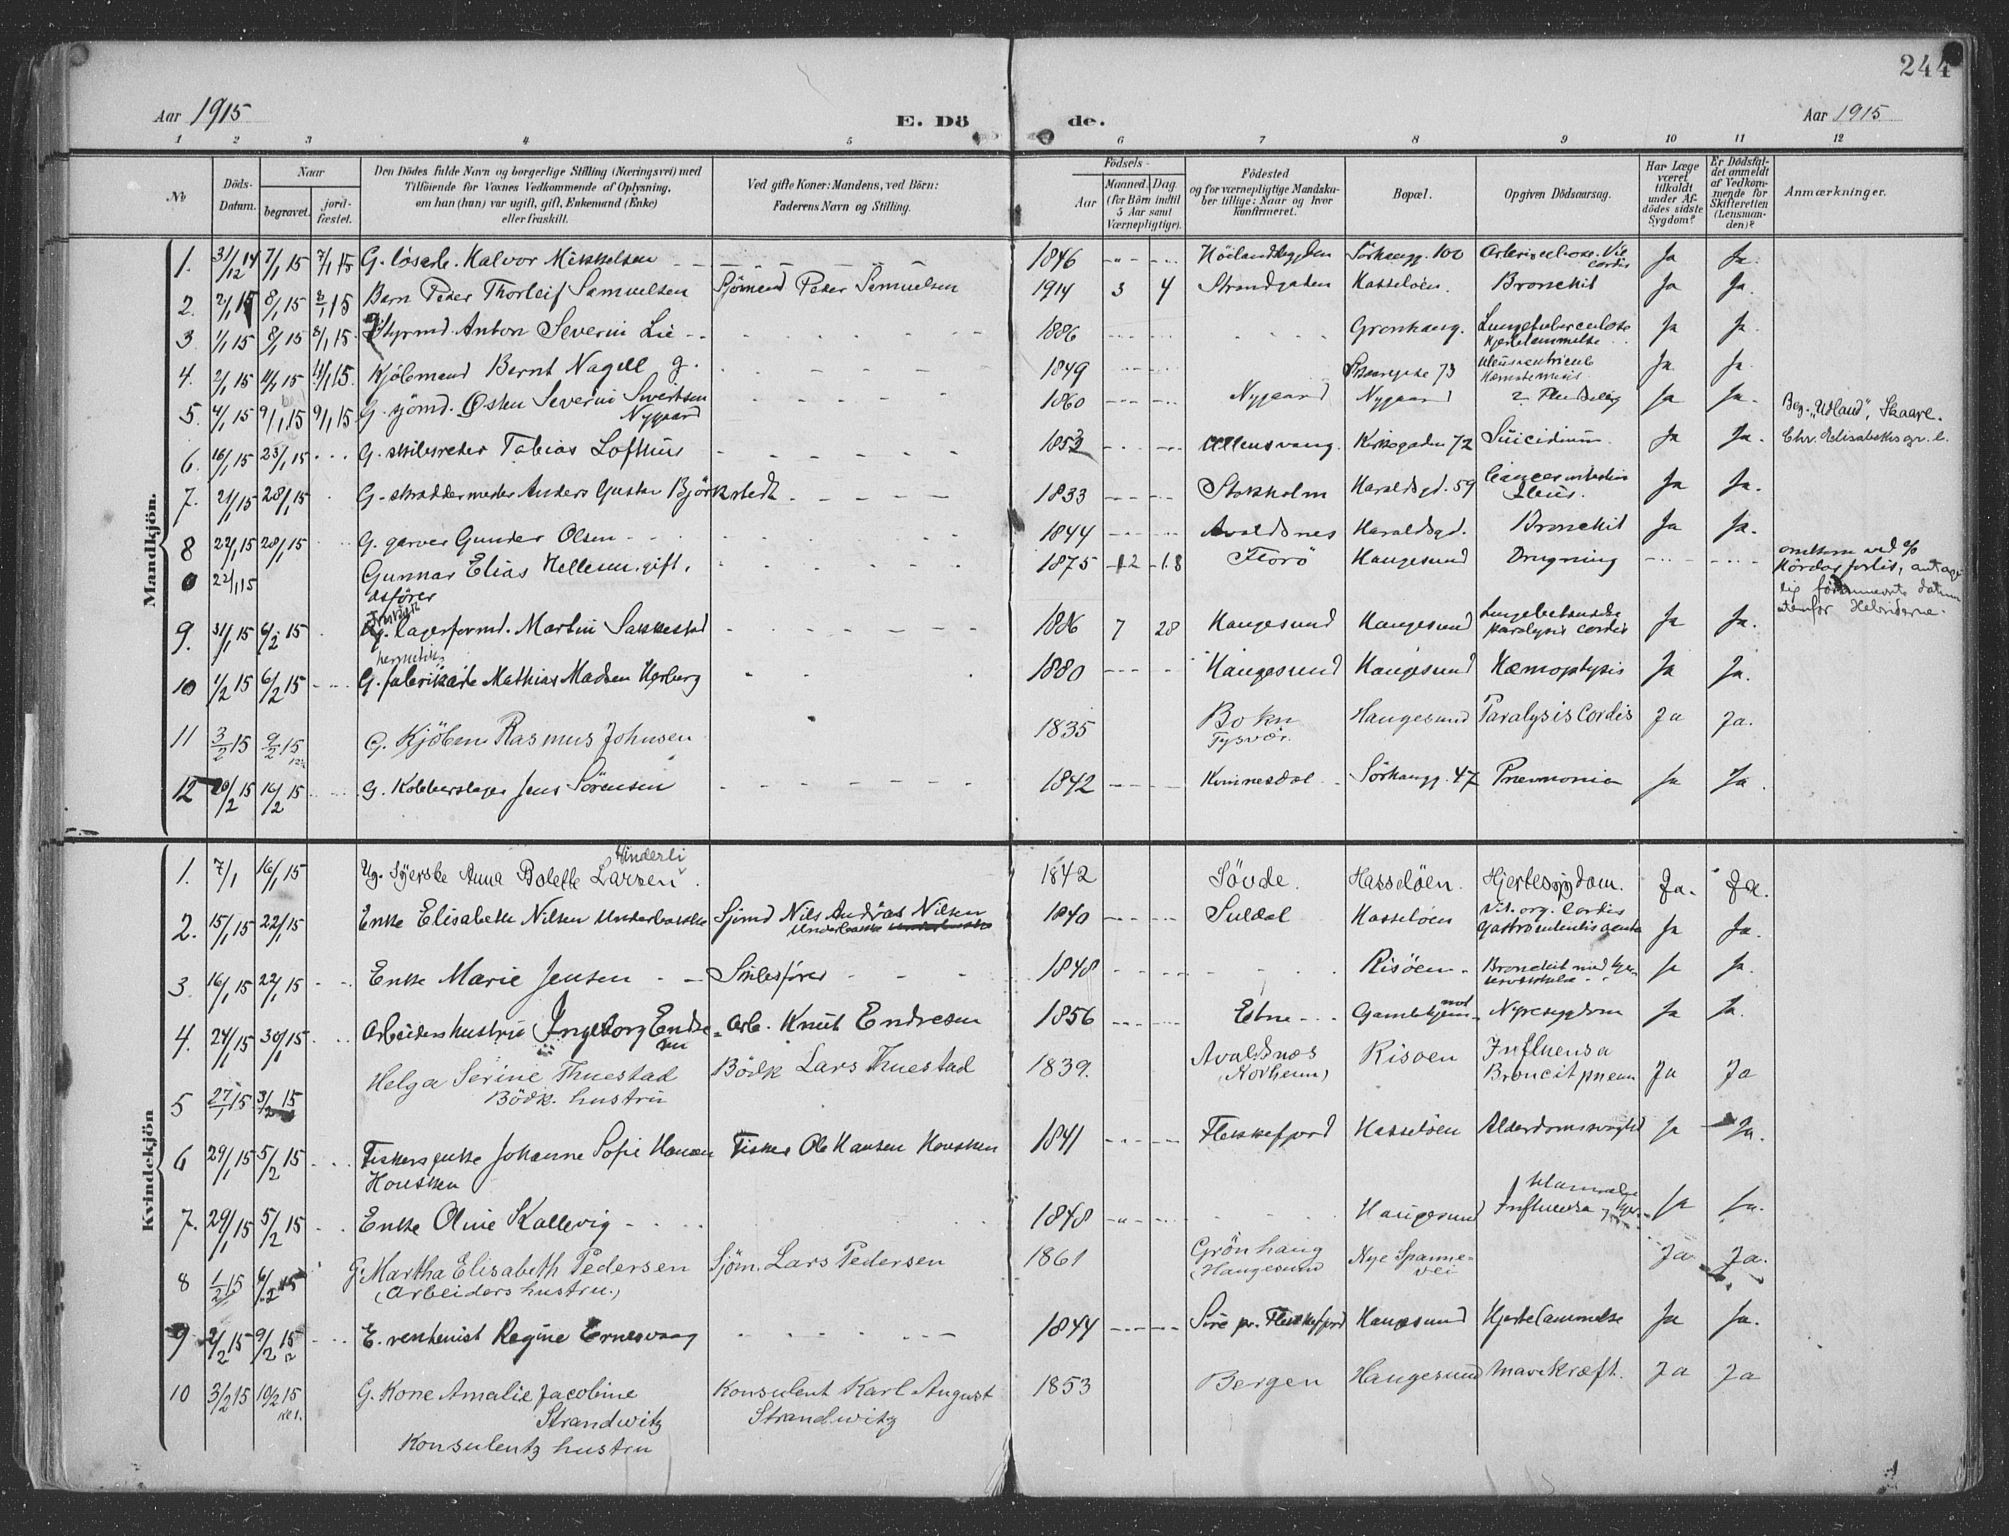 244
Aar 1915
E. Dö
de.
Aar 1915
1 2 3 4 5 6 7 8 9 10 11 12
No
Döds-Datum.
Naar
begravet.
jord-fæstet.
Den Dödes fulde Navn og borgerlige Stilling (Næringsvei) med
Tilföiende for Voxnes Vedkommende af Oplysning,
om han (hun) var ugift, gift, Enkemand (Enke)
eller fraskilt.
Ved gifte Koner: Mandens, ved Börn:
Faderens Navn og Stilling.
Födsels-
Aar
Maaned. Dag.
(for Börn indtil
5 Aar samt
Værnepligtige).
Födested
og for værnepligtige Mandska-
ber tillige: Naar og hvor
konfirmeret.
Bopæl.
Opgiven Dödsaarsag.
Har Læge
været
tilkaldt
under Af-
dödes sidste
Sygdom?
Er Dödsfal-
det anmeldt
af Vedkom-
mende for
Skifteretten
(Lensman-
den)?
Anmærkninger.
Mandkjön.
1. 31/12 14 7/1 15 7/1 15 G. löserb. Halvor Mikkelsen 1846 Höilandsbygden Sörhaugg. 100 Ja Ja.
2. 2/1 15 8/1 15 8/1 15 Barn Peder Thorleif Samuelsen Sjömand Peder Samuelsen 1914 3 4 Strandgaten Hasseløen. Bronchit Ja Ja.
3 1/1 15 8/1 15 8/1 15 Styrmd. Anton Severin Lie 1886 Grönhaug. Lungetuberculose Ja Ja.
Hjertelammelse
4. 2/1 15 11/1 15 11/1 15. Kjöbmand Bernt Nagell g. 1849 Skaaregate 73 Ja. Ja.
5. 4/1 15 9/1 15 9/1 15 G. sjömd. Østen Severin Sivertsen 1860 Nygaard Nygaard Ja Ja.
Nygaard
Beg. "Udland", Skaare.
6. 16/1 15 23/1 15 G. skibsreder Tobias Lofthus 1853 Ullensvang. Kirkegaden 72 Suicidium. Ja Ja.
7. 21/1 15 28/1 15 G. skræddermester Anders Gustav Björkstedt 1833 Stokholm Haraldsgd. 59 Ja Ja.
8 22/1 15 28/1 15 G. garver Gunder Olsen 1844 Avaldsnes Haraldsgd. Bronchit Ja Ja.
0 22/1 15 Gunnar Elias Hellenn. gift. 1875 12 18 Florö Haugesund Drugning
omkom ved
9. 31/1 15 6/2 15 G. Lagerformd. Martin Sakkestad 1886 7 28 Haugesund Haugesund Lungebetændelse Ja Ja.
paralysis cordis
10 1/2 15 6/2 15 G. fabrikarb Mathias Madsen Hørberg 1880 Haugesund Haugesund Hæmoptysis Ja Ja.
11 3/2 15 9/2 15 G. Kjöbm. Rasmus Johnsen 1835 Bokn Haugesund Paralysis Cordis Ja Ja.
Tysvær.
12 10/2 15 16/2 15 G. Kobberslager Jens Sörensen 1842 Kvinnesdal Sörhaugg. 47 Pnevmonia Ja Ja
Kvindekjön
Hinderli
1. 7/1 16/1 15 Ug. Syerske Anna Bolette Larsen 1842 Søvde. Hasseløen. Hjertesygdom. Ja. Ja.
2. 15/1 15 22/1 15 Enke Elisabeth Nilsen Underbakke Sjömd Nils Andreas Nilsen 1840 Suldal Hasseløen Vit. org. Cordis Ja Ja.
Underbakke
3. 16/1 15 22/1 15 Enke Marie Jensen Skibsförer 1848 Risöen Ja Ja.
4. 24/1 15 30/1 15 Arbeiderhustru Ingeborg Endresen Arb. Knut Endresen 1856 Etne Nyresygdom Ja Ja.
5 27/1 15 3/2 15 Helga Serine Thuestad Bödk Lars Thuestad 1839. Avaldsnæs Risøen Influensa Ja Ja
Bödk. hustru
(Norheim)
Broncitpneum
6 29/1 15 5/2 15 Fiskersenke Johanne Sofie Hansen Fisker Ole Hansen Housken 1841 Flekkefjord Hasseløen Alderdomssvaghed Ja Ja.
Housken
7. 29/1 15 5/2 15 Enke Oline Kallevig 1848 Haugesund Influensa Ja Ja.
8 1/2 15 6/2 15 G. Martha Elisabeth Pedersen Sjöm. Lars Pedersen 1861 Grönhaug Nye Spanne- Ja Ja.
(Arbeiders hustru.)
(Haugesund vei
9 2/2 15 9/2 15 E. rentenist Regine Ernesvaag 1844 Sire pr. Flekkefjord Haugesund Hjertelammelse Ja Ja.
10 3/2 15 10/2 15 G. Kone Amalie Jacobine Konsulent Karl August 1853 Bergen Haugesund Mavekræft. Ja Ja
Strandwitz Strandwitz
Konsulentz hustru